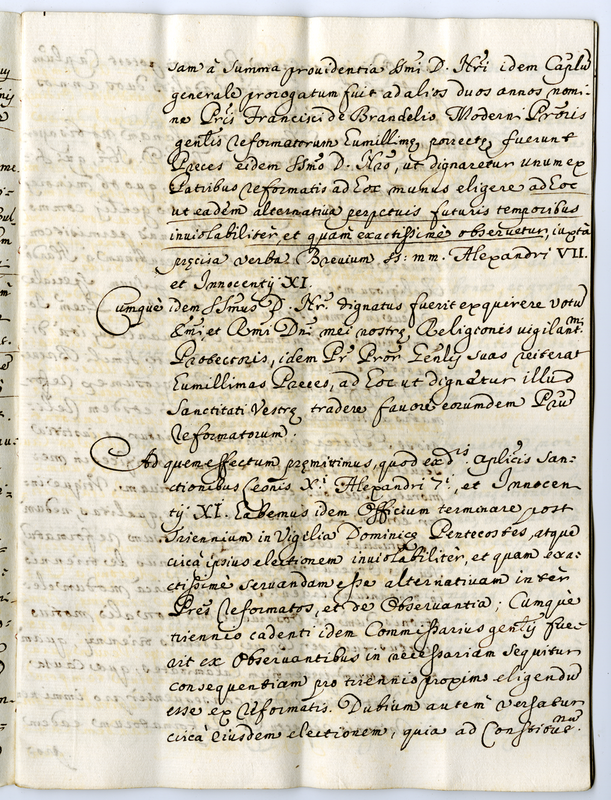 sam à Summa providentia SSmi D. Nri idem Caplu
generale prorogatum fuit ad alios duos annos nomi-
ne Pris Francisci de Brandelis Moderni Proris
genlis reformatorum humillimę porrectę fuerunt
Pręces eidem SSmo D. Nro, ut dignaretur unum ex
Patribus reformatis ad hoc munus eligere ad hoc
ut eadem alternativa perpetuis futuris temporibus
inviolabilitèr, et quàm exactissimè observetur, iuxtà
pręcisa verba Brevium ss: mm. Alexandri VII.
et Innocentij XI.
Cumquè idem SSmus D. Nr. dignatus fuerit exquirere votũ
Emi, et Rmi Dni mei nostrę Religionis vigilantmi
Protectoris, idem Pr Pror Genlis suas reiterat
humillimas Pręces, ad hoc ut dignetur illud
Sanctitati Vestrę tradere favorè eorumdem Prũ
reformatorum.
Ad quem effectum pręmittimus, quod ex dis aplicis San-
ctionibus Leonis Xi Alexandri 7i, et Innocen
tij XI. habemus idem Officium terminare post
triennium in Vigilia Dominicę Pentecostes, atque
circà ipsius electionem inviolabilitèr, et quam exa-
ctissimè servandam esse alternativam intèr
Pres reformatos, et de Observantia; Cumquè
triennio cadenti idem Commissarius genlis fue-
rit ex Observantibus in necessariam sequitur
consequentiam pro triennio proximo eligendũ
esse ex reformatis. Dubium autem versatur
circà eiusdem electionem, quia ad Constitutnu